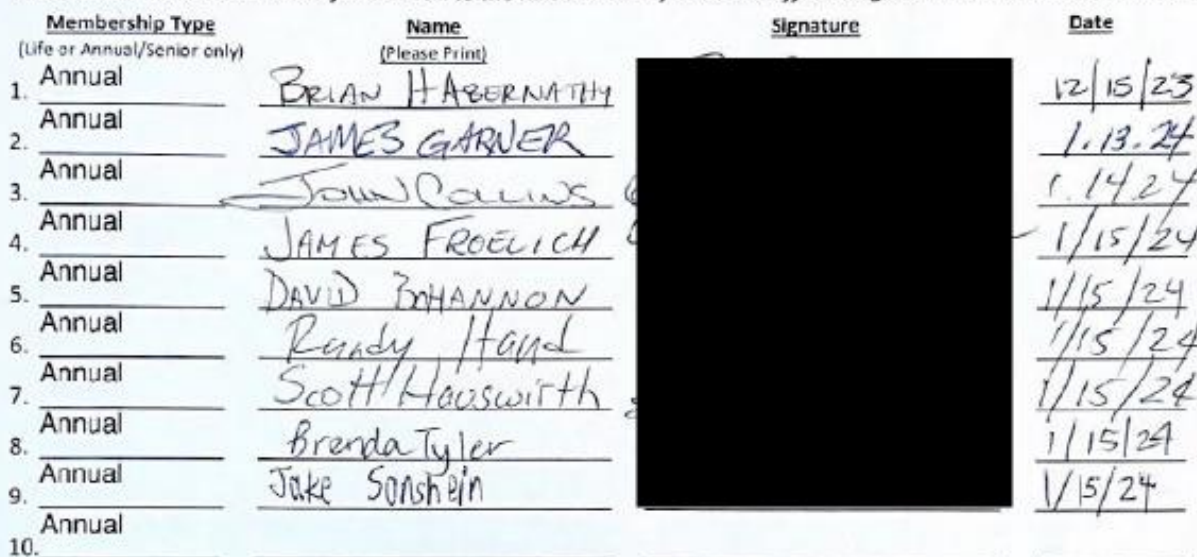 Membership Type Name Signature Date
(Life or Annual/Senior only) (Please Print)
1. Annual BRIAN HABERNATHY 12/15/23
2. Annual JAMES GARNER 1.13.24
3. Annual JOHN COLLINS 1.14.24
4. Annual JAMES FROELICH 1/15/24
5. Annual DAVID BOHANNON 1/15/24
6. Annual Randy Hand 1/15/24
7. Annual Scott Hauswirth 1/15/24
8. Annual Brenda Tyler 1/15/24
9. Annual Jake Sonshein 1/15/24
10. Annual